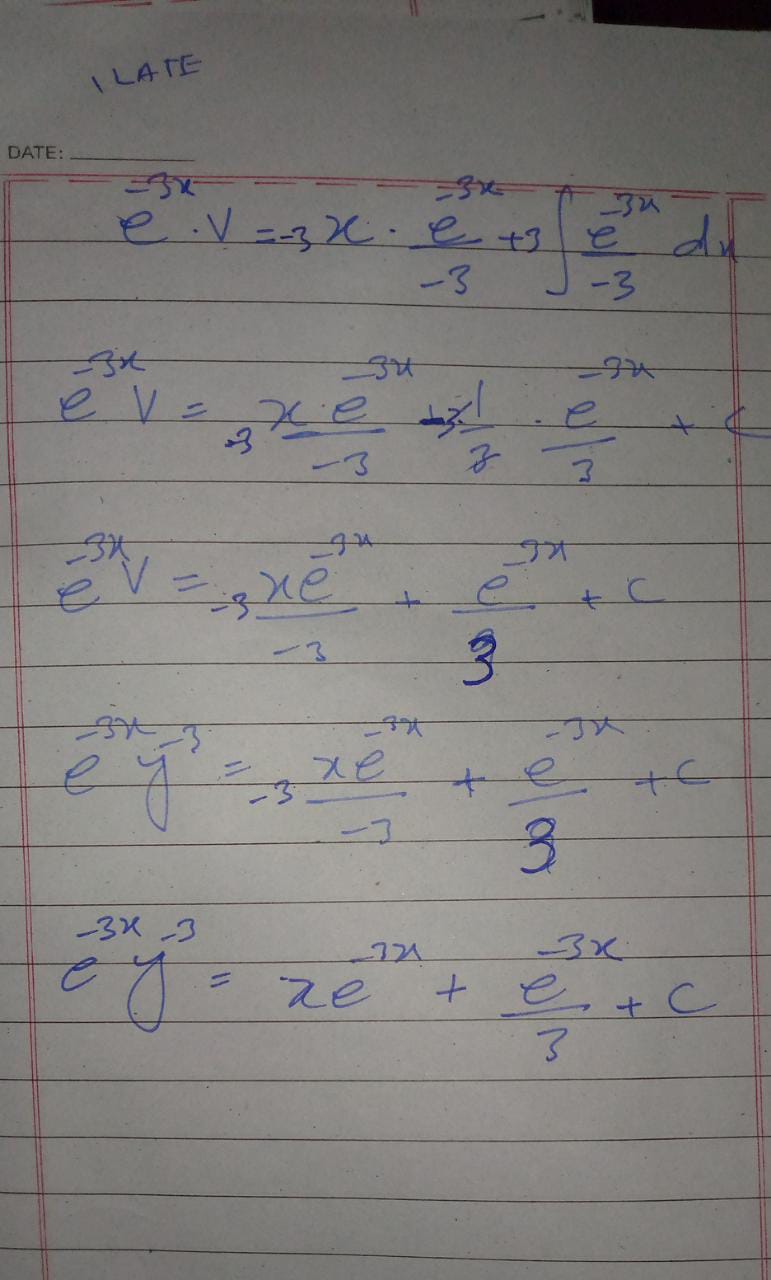 ILATE
DATE:
e^{-3x} . V = -3 x . e^{-3x}/-3 + 3 ∫ e^{-3x}/-3 dx
e^{-3x} V = -3 x e^{-3x}/-3 + 1/3 . e^{-3x}/3 + C
e^{-3x} V = -3 xe^{-3x}/-3 + e^{-3x}/3 + C
e^{-3x} y^{-3} = -3 xe^{-3x}/-3 + e^{-3x}/3 + C
e^{-3x} y^{-3} = xe^{-3x} + e^{-3x}/3 + C